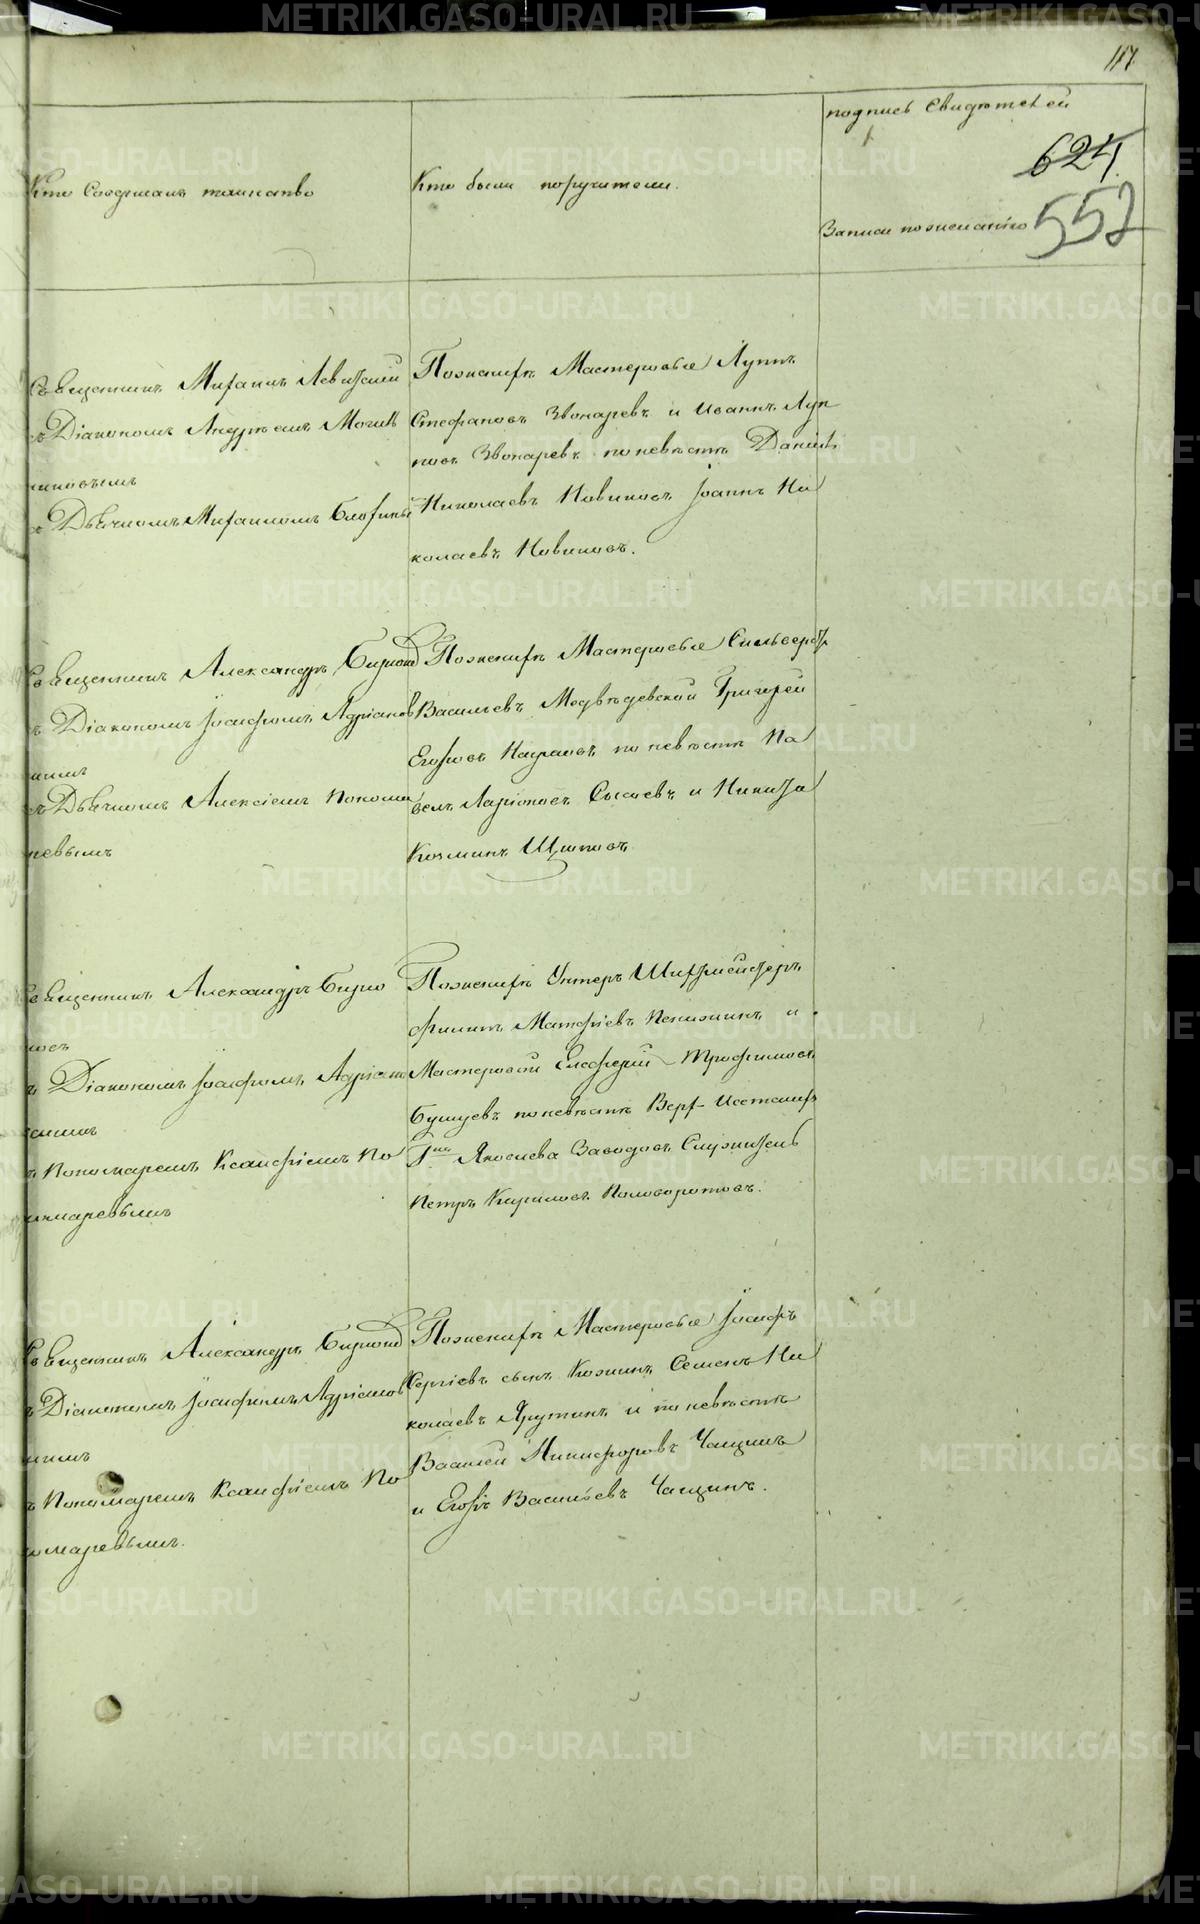 117
Кто совершалъ таинство
Кто были поручители.
подпись свидѣтелей
624
Записи по желанію
552
Священникъ Михаилъ Левитскій
съ Діакономъ Андреемъ Могиль
никовымъ
Дьячкомъ Михаиломъ
Поженихѣ Мастеровые Луппъ
Стефановъ Звонаревъ и Иванъ Луп
повъ Звонаревъ по невѣстѣ Даніилъ
Николаевъ Новиковъ Іоаннъ Ни
колаевъ Новиковъ.
Священникъ Александръ
Діакономъ Іосифомъ Адріанов
скимъ
Дьячкомъ Алексіемъ
Поженихѣ Мастеровые Сильверстъ
Васильевъ Медвѣдевской Григорей
Егоровъ по невѣстѣ Па
велъ Ларіоновъ Сысоевъ и Никита
Козминъ Щиповъ
Священникъ Александръ
Діакономъ Іосифомъ Адріано
Пономаремъ Ксанфіемъ По
номаревымъ
Поженихѣ Унтеръ Шихтмейстеръ
Филипъ Матфіевъ и
Мастеровой Елеферій Трофимовъ
Бушуевъ по невѣстѣ Верх-Исетскихъ
Гна Яковлева Заводовъ Служитель
Петръ Кириловъ Половоротовъ.
Священникъ Александръ
Діакономъ Іосифомъ Адріанов
скимъ
Пономаремъ Ксанфіемъ По
номаревымъ.
Поженихѣ Мастеровые Іосифъ
Сергіевъ сынъ Козминъ Семенъ Ни
колаевъ Ярутинъ и по невѣстѣ
Василей Никифоровъ Чащинъ
и Егоръ Васильевъ Чащинъ.
METRIKI.GASO-URAL.RU